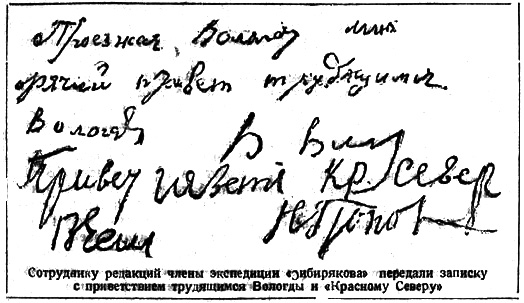 Проезжая Вологду шлю
горячий привет трудящимся
Вологды
Привет газете Кр Север
Н Попов
Сотруднику редакций члены экспедиции «Сибирякова» передали записку
с приветствием трудящимся Вологды и «Красному Северу»